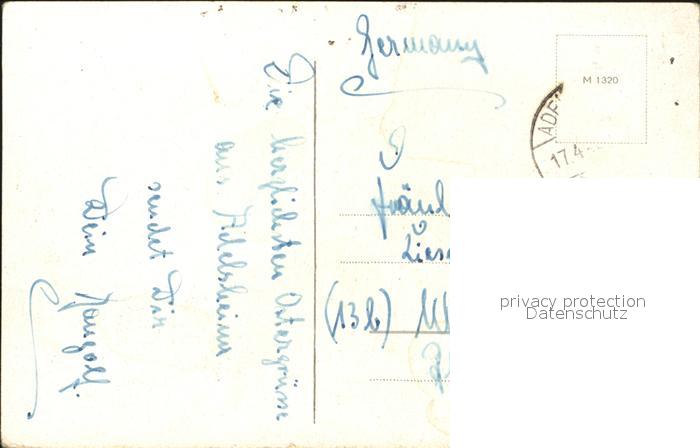 Die herzlichsten Ostergrüsse
aus Adelsheim
sendet Dir
Dein
Germany
M 1320
ADE
17.4
Fräul
Liese
(13b)
privacy protection
Datenschutz